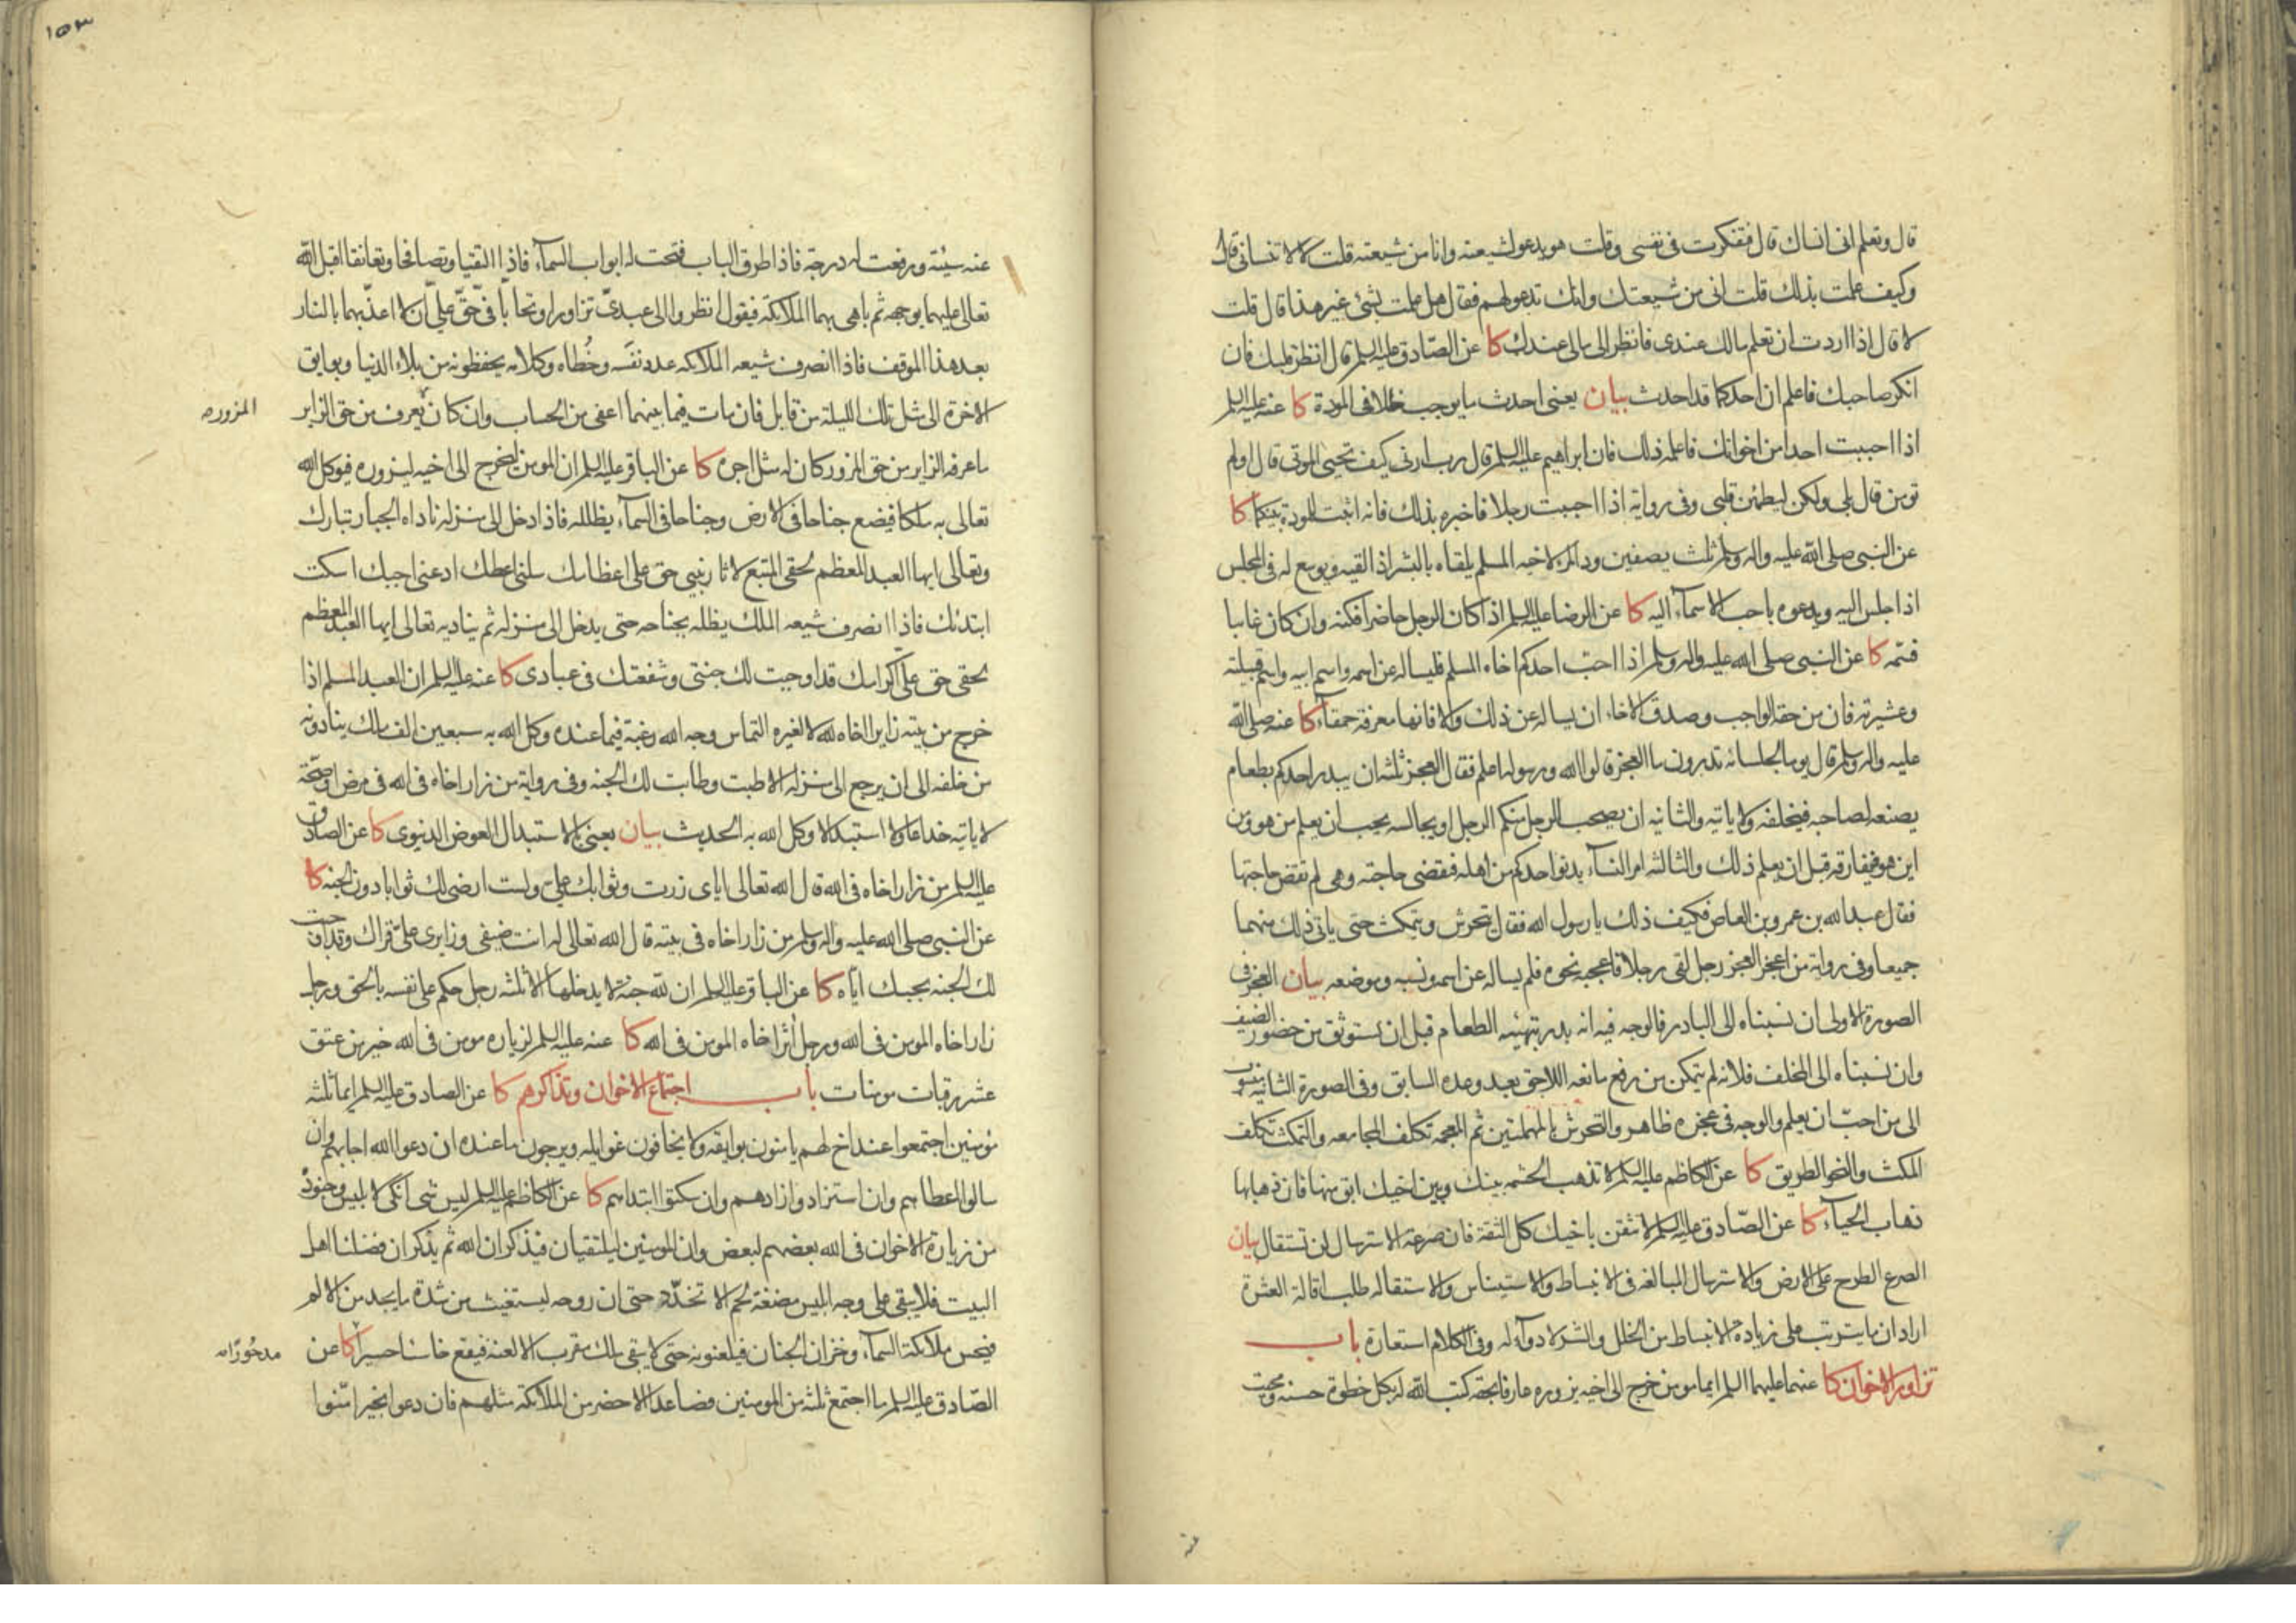 قال وتعلم انى انساك قال فتفكرت فى نفسى وقلت هو يدعو لشيعته وانا من شيعته قلت لا لا تنسانى قال
وكيف علمت بذلك قلت انى من شيعتك وانك تدعو لهم فقال هل علمت بشئ غير هذا قال قلت
لا قال اذا اردت ان تعلم مالك عندى فانظر الى مالى عندك كا عن الصّادق عليه السلم قال انظر قلبك فان
انكر صاحبك فاعلم ان احدكما قد احدث بيان يعنى احدث ما يوجب خللا فى المودة كا عنه عليه السلم
اذا احببت احدا من اخوانك فاعلمه ذلك فان ابراهيم عليه السلم قال رب ارنى كيف تحيى الموتى قال اولم
تومن قال بلى ولكن ليطمئن قلبى وفى رواية اذا احببت رجلا فاخبره بذلك فانه اثبت للمودة بينكما كا
عن النبى صلى الله عليه واله وسلم ثلث يصفين ود المرء لاخيه المسلم يلقاه بالبشر اذا لقيه ويوسع له فى المجلس
اذا جلس اليه ويدعوه باحب الاسمآء اليه كا عن الرضا عليه السلم اذا كان الرجل حاضرا فكنه وان كان غايبا
فسمه كا عن النبى صلى الله عليه واله وسلم اذا احبّ احدكم اخاه المسلم فليساله عن اسمه واسم ابيه واسم قبيلته
وعشيرته فان من حقه الواجب وصدق الاخاء ان يساله عن ذلك والا فانها معرفة حمقآء كا عنه صلى الله
عليه واله وسلم قال يوما لجلسائه تدرون ما العجز قالوا الله ورسوله اعلم فقال العجز ثلثه ان يبدر احدكم بطعام
يصنعه لصاحبه فيخلفه ولا ياتيه والثانيه ان يصحب الرجل منكم الرجل او يجالسه يحب ان يعلم من هو ومن
اين هو فيفارقه قبل ان يعلم ذلك والثالثه امر النسآء يدنو احدكم من اهله فيقضى حاجته وهى لم تقض حاجتها
فقال عبد الله بن عمرو بن العاص فكيف ذلك يا رسول الله فقال يتحرش ويتمكث حتى ياتى ذلك منهما
جميعا وفى رواية من اعجز العجز رجل لقى رجلا فاعجبه نحوه فلم يساله عن اسمه ونسبه وموضعه بيان العجز فى
الصورة الاولى ان نسبناه الى البادر فالوجه فيه انه بدر بتهيئه الطعام قبل ان يستوثق من حضور الضيف
وان نسبناه الى المخلف فلانه لم يتمكن من رفع مانعه اللاحق بعد وعده السابق وفى الصورة الثانيه منسوب
الى من احبّ ان يعلم والوجه فى عجزه ظاهر والتحرش بالمهملتين ثم المعجمه تكلف المجامعه والتمكث تكلف
المكث والنحو الطريق كا عن الكاظم عليه السلم لا تذهب الحشمه بينك وبين اخيك ابق منها فان ذهابها
ذهاب الحيآء كا عن الصّادق عليه السلم لا تثقن باخيك كل الثقة فان صرعة الاسترسال لن تستقال بيان
الصرع الطرح على الارض والاسترسال المبالغه فى الانبساط والاستيناس والاستقاله طلب اقالة العثرة
اراد ان ما يترتب على زياده الانبساط من الخلل والشر لا دوآء له وفى الكلام استعارة باب
تزاور الاخوان كا عنهما عليهما السلم ايما مومن خرج الى اخيه يزوره عارفا بحقه كتب الله له بكل خطوة حسنه ومحيت
عنه
١٥٣
عنه سيئته ورفعت له درجة فاذا طرق الباب فتحت له ابواب السمآء فاذا التقيا وتصافحا وتعانقا اقبل الله
تعالى عليهما بوجهه ثم باهى بهما الملائكة فيقول انظروا الى عبدىّ تزاورا وتحابّا فىّ حقّ علىّ ان لا اعذّبهما بالنار
بعد هذا الموقف فاذا انصرف شيعه الملائكه عدد نفسه وخُطاه وكلامه يحفظونه من بلاء الدنيا وبوايق
الاخرة الى مثل تلك الليلة من قابل فان مات فيما بينهما اعفى من الحساب وان كان يعرف من حق الزاير
المزوره
ما عرفه الزاير من حق المزور كان له مثل اجره كا عن الباقر عليه السلم ان المومن ليخرج الى اخيه ليزوره فيوكل الله
تعالى به ملكا فيضع جناحا فى الارض وجناحا فى السمآء يظلله فاذا دخل الى منزله ناداه الجبار تبارك
وتعالى ايها العبد المعظم لحقى المتبع لاثار نبيى حق على اعظامك سلنى اعطك ادعنى اجبك اسكت
ابتدئك فاذا انصرف شيعه الملك يظله بجناحه حتى يدخل الى منزله ثم يناديه تعالى ايها العبد المعظم
لحقى حق علىّ اكرامك قد اوجبت لك جنتى وشفعتك فى عبادى كا عنه عليه السلم ان العبد المسلم اذا
خرج من بيته زايرا اخاه لله لا لغيره التماس وجه الله رغبة فيما عنده وكل الله به سبعين الف ملك ينادونه
من خلفه الى ان يرجع الى منزله الا طبت وطابت لك الجنه وفى رواية من زار اخاه فى الله فى مرض او صحّة
لا ياتيه خداعا ولا استبدالا وكل الله به الحديث بيان يعنى بالاستبدال العوض الدنيوى كا عن الصادق
عليه السلم من زار اخاه فى الله قال الله تعالى اياى زرت وثوابك علىّ ولست ارضى لك ثوابا دون الجنه كا
عن النبى صلى الله عليه واله وسلم من زار اخاه فى بيته قال الله تعالى له انت ضيفى وزايرى علىّ قراك وقد اوجبت
لك الجنه بحبك ايّاه كا عن الباقر عليه السلم ان لله جنة لا يدخلها الا ثلثه رجل حكم على نفسه بالحق ورجل
زار اخاه المومن فى الله ورجل اثر اخاه المومن فى الله كا عنه عليه السلم لزياره مومن فى الله خير من عتق
عشر رقبات مومنات باب اجتماع الاخوان وتذاكرهم كا عن الصادق عليه السلم ايما ثلثه
مؤمنين اجتمعوا عند اخ لهم يامنون بوايقه ولا يخافون غوايله ويرجون ما عنده ان دعوا الله اجابهم وان
سالوا اعطاهم وان استزادوا زادهم وان سكتوا ابتداهم كا عن الكاظم عليه السلم ليس شى انكى لابليس وجنوده
من زيارة الاخوان فى الله بعضهم لبعض وان المومنين ليلتقيان فيذكران الله ثم يذكران فضلنا اهل
البيت فلا يبقى على وجه ابليس مضغة لحم الا تخدّد حتى ان روحه ليستغيث من شدة ما يجد من الالم
فيحس ملائكة السمآء وخزان الجنان فيلعنونه حتى لا يبقى ملك مقرب الا لعنه فيقع خاسئا حسيرا كا عن
مدحُورًا
الصّادق عليه السلم ما اجتمع ثلثه من المومنين فصاعدا الا حضر من الملائكة مثلهم فان دعوا بخير امّنوا